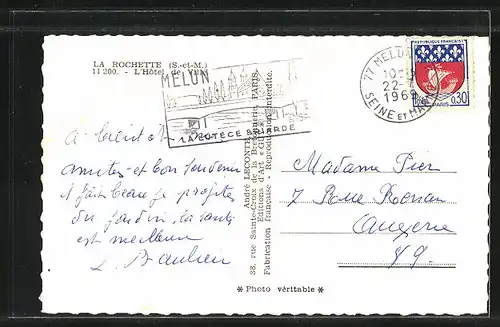 LA ROCHETTE (S.-et-M.)
11 200. - L'Hôtel de Ville
MELUN
LA LUTÈCE BRIARDE
77 MELUN
22-
1969
SEINE ET MARNE
REPUBLIQUE FRANÇAISE
0,30
PARIS
à bientôt
amitiés et bon souvenir
il fait beau je profite
du jardin, la santé
est meilleure
André LECONTE
38, rue Sainte-Croix de la Bretonnerie, PARIS.
Editions d'Art " GUY "
Fabrication française - Reproduction interdite.
Madame
7 Rue
89.
* Photo véritable *